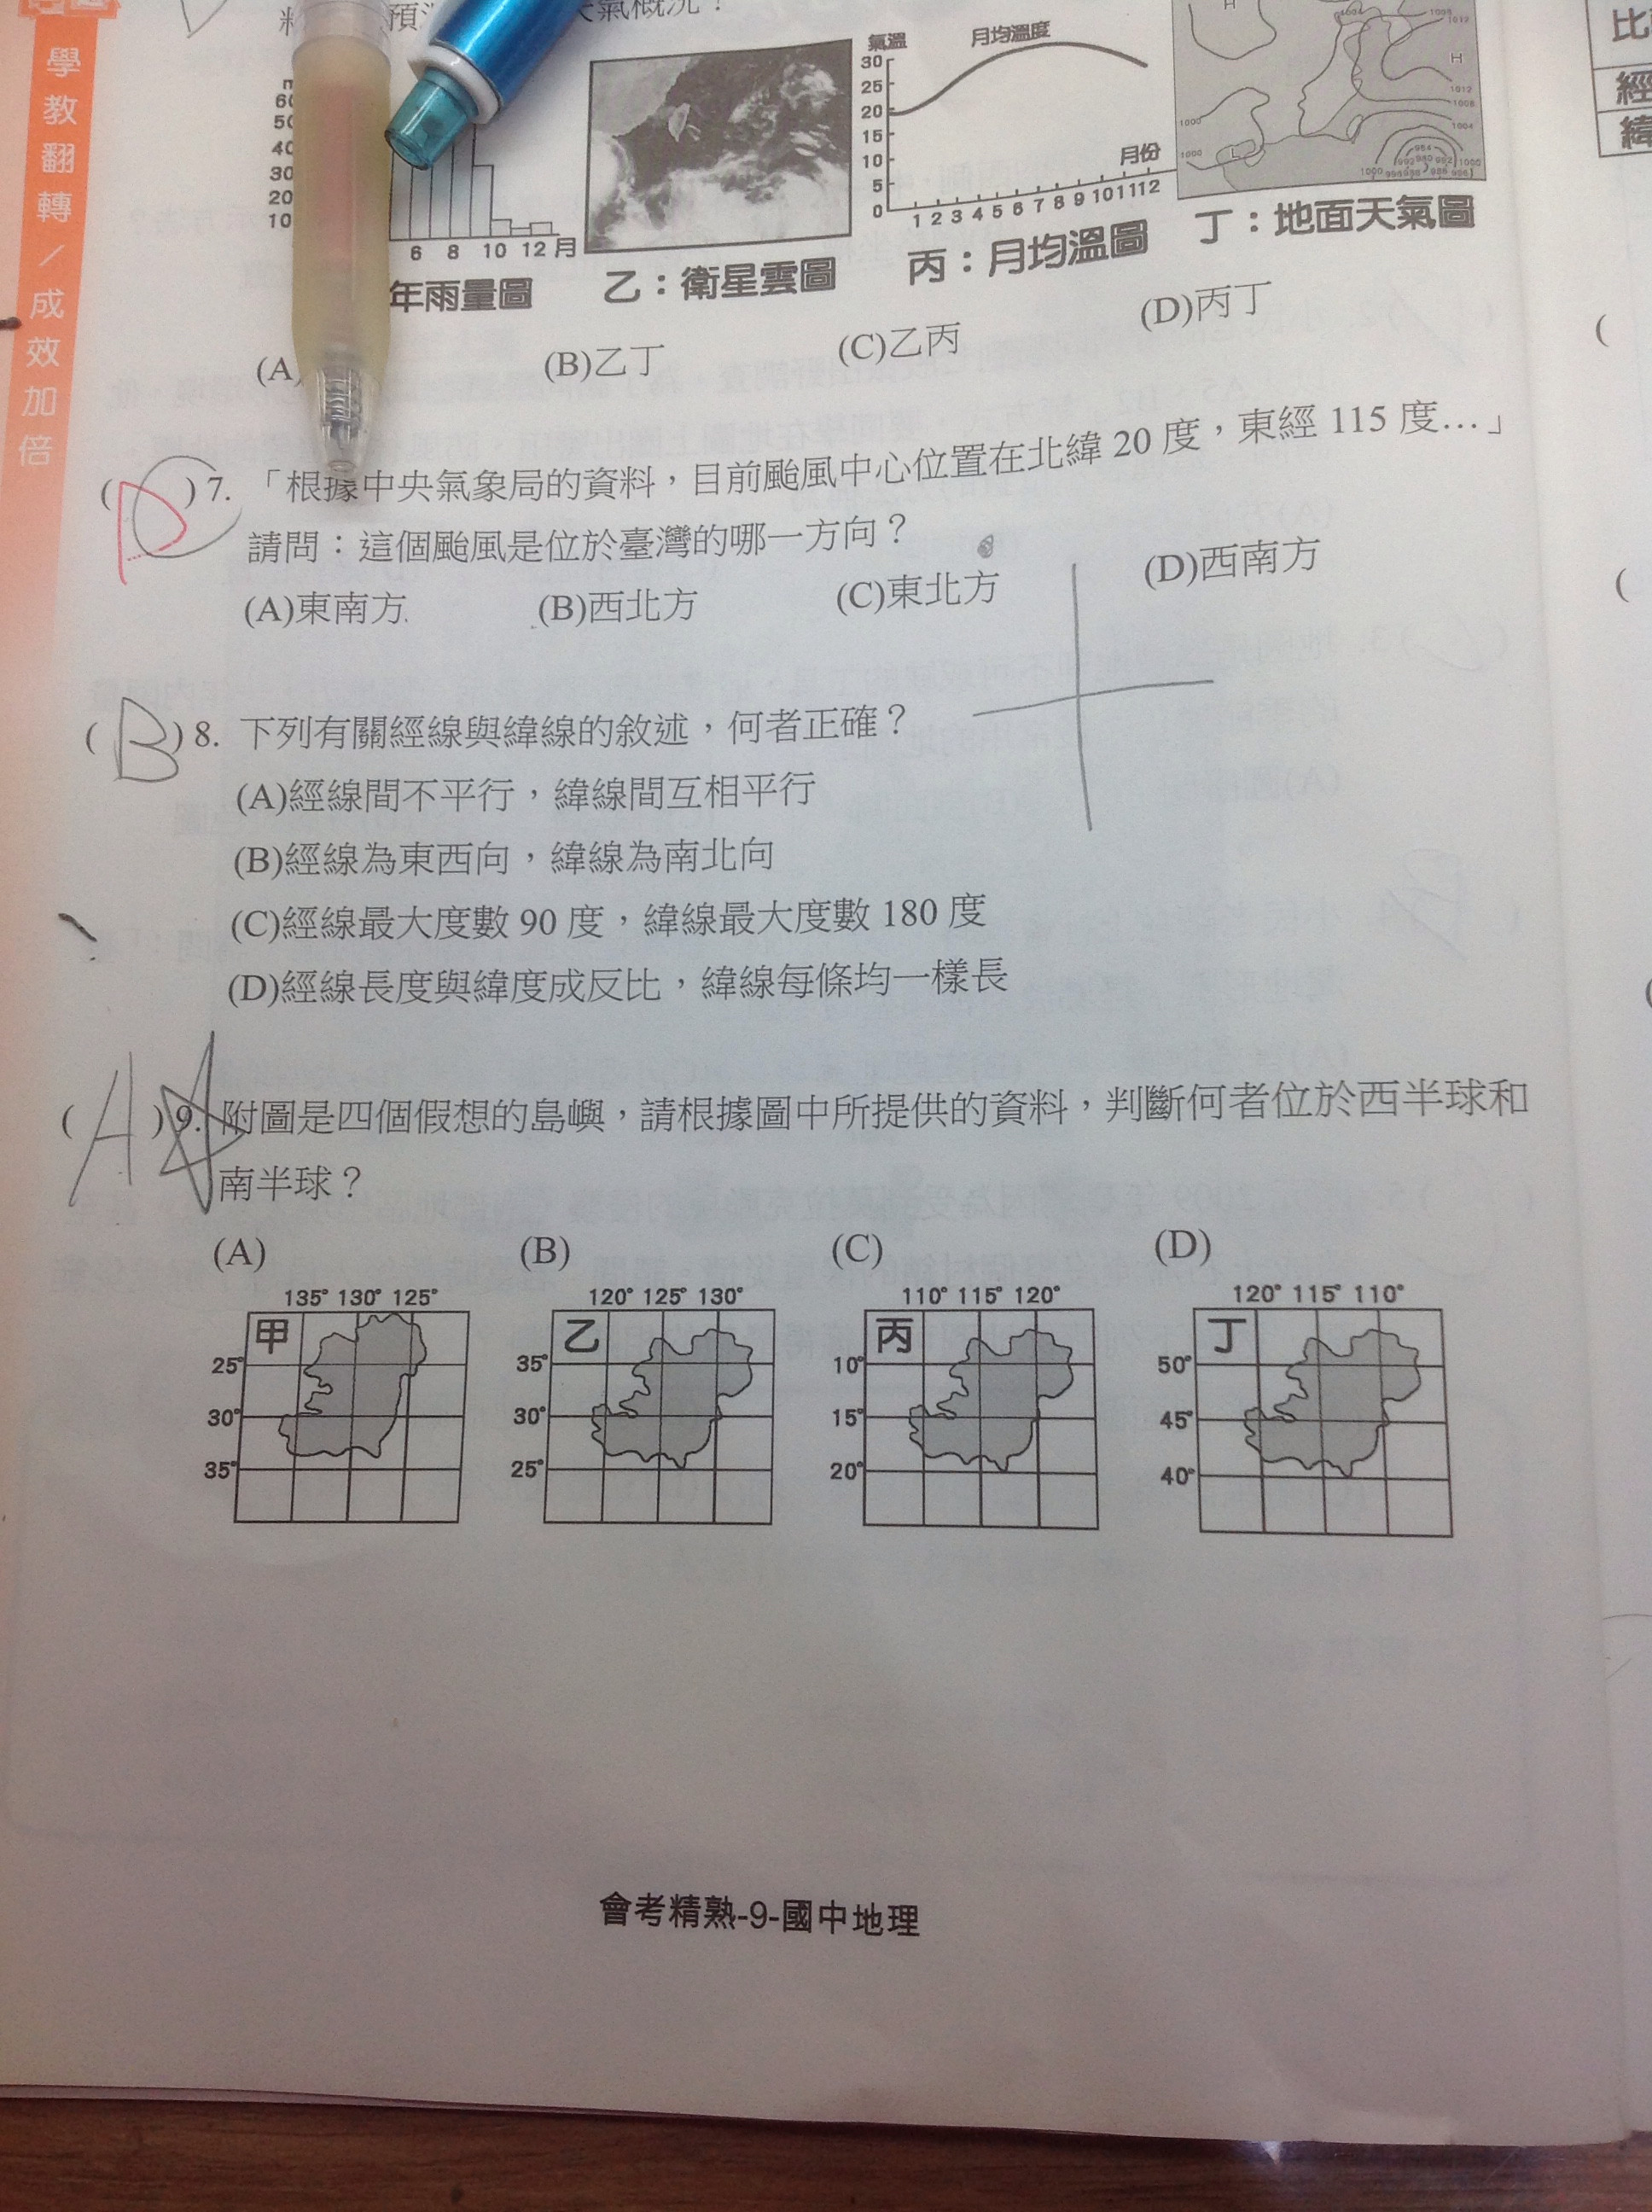 學教翻轉／成效加倍
氣溫
月均溫度
30
25
20
15
10
5
0
月份
1 2 3 4 5 6 7 8 9 10 11 12
40
30
20
10
6 8 10 12 月
H
H
L
1012
1012
1008
1004
1000
1000
1000
年雨量圖
乙：衛星雲圖
丙：月均溫圖
丁：地面天氣圖
(A)
(B)乙丁
(C)乙丙
(D)丙丁
( D )7. 「根據中央氣象局的資料，目前颱風中心位置在北緯 20 度，東經 115 度…」
請問：這個颱風是位於臺灣的哪一方向？
(A)東南方 (B)西北方 (C)東北方 (D)西南方
( B ) 8. 下列有關經線與緯線的敘述，何者正確？
(A)經線間不平行，緯線間互相平行
(B)經線為東西向，緯線為南北向
(C)經線最大度數 90 度，緯線最大度數 180 度
(D)經線長度與緯度成反比，緯線每條均一樣長
( A ) 9. 附圖是四個假想的島嶼，請根據圖中所提供的資料，判斷何者位於西半球和
南半球？
(A) (B) (C) (D)
135° 130° 125°
甲
25°
30°
35°
120° 125° 130°
乙
35°
30°
25°
110° 115° 120°
丙
10°
15°
20°
120° 115° 110°
丁
50°
45°
40°
會考精熟-9-國中地理
經
緯